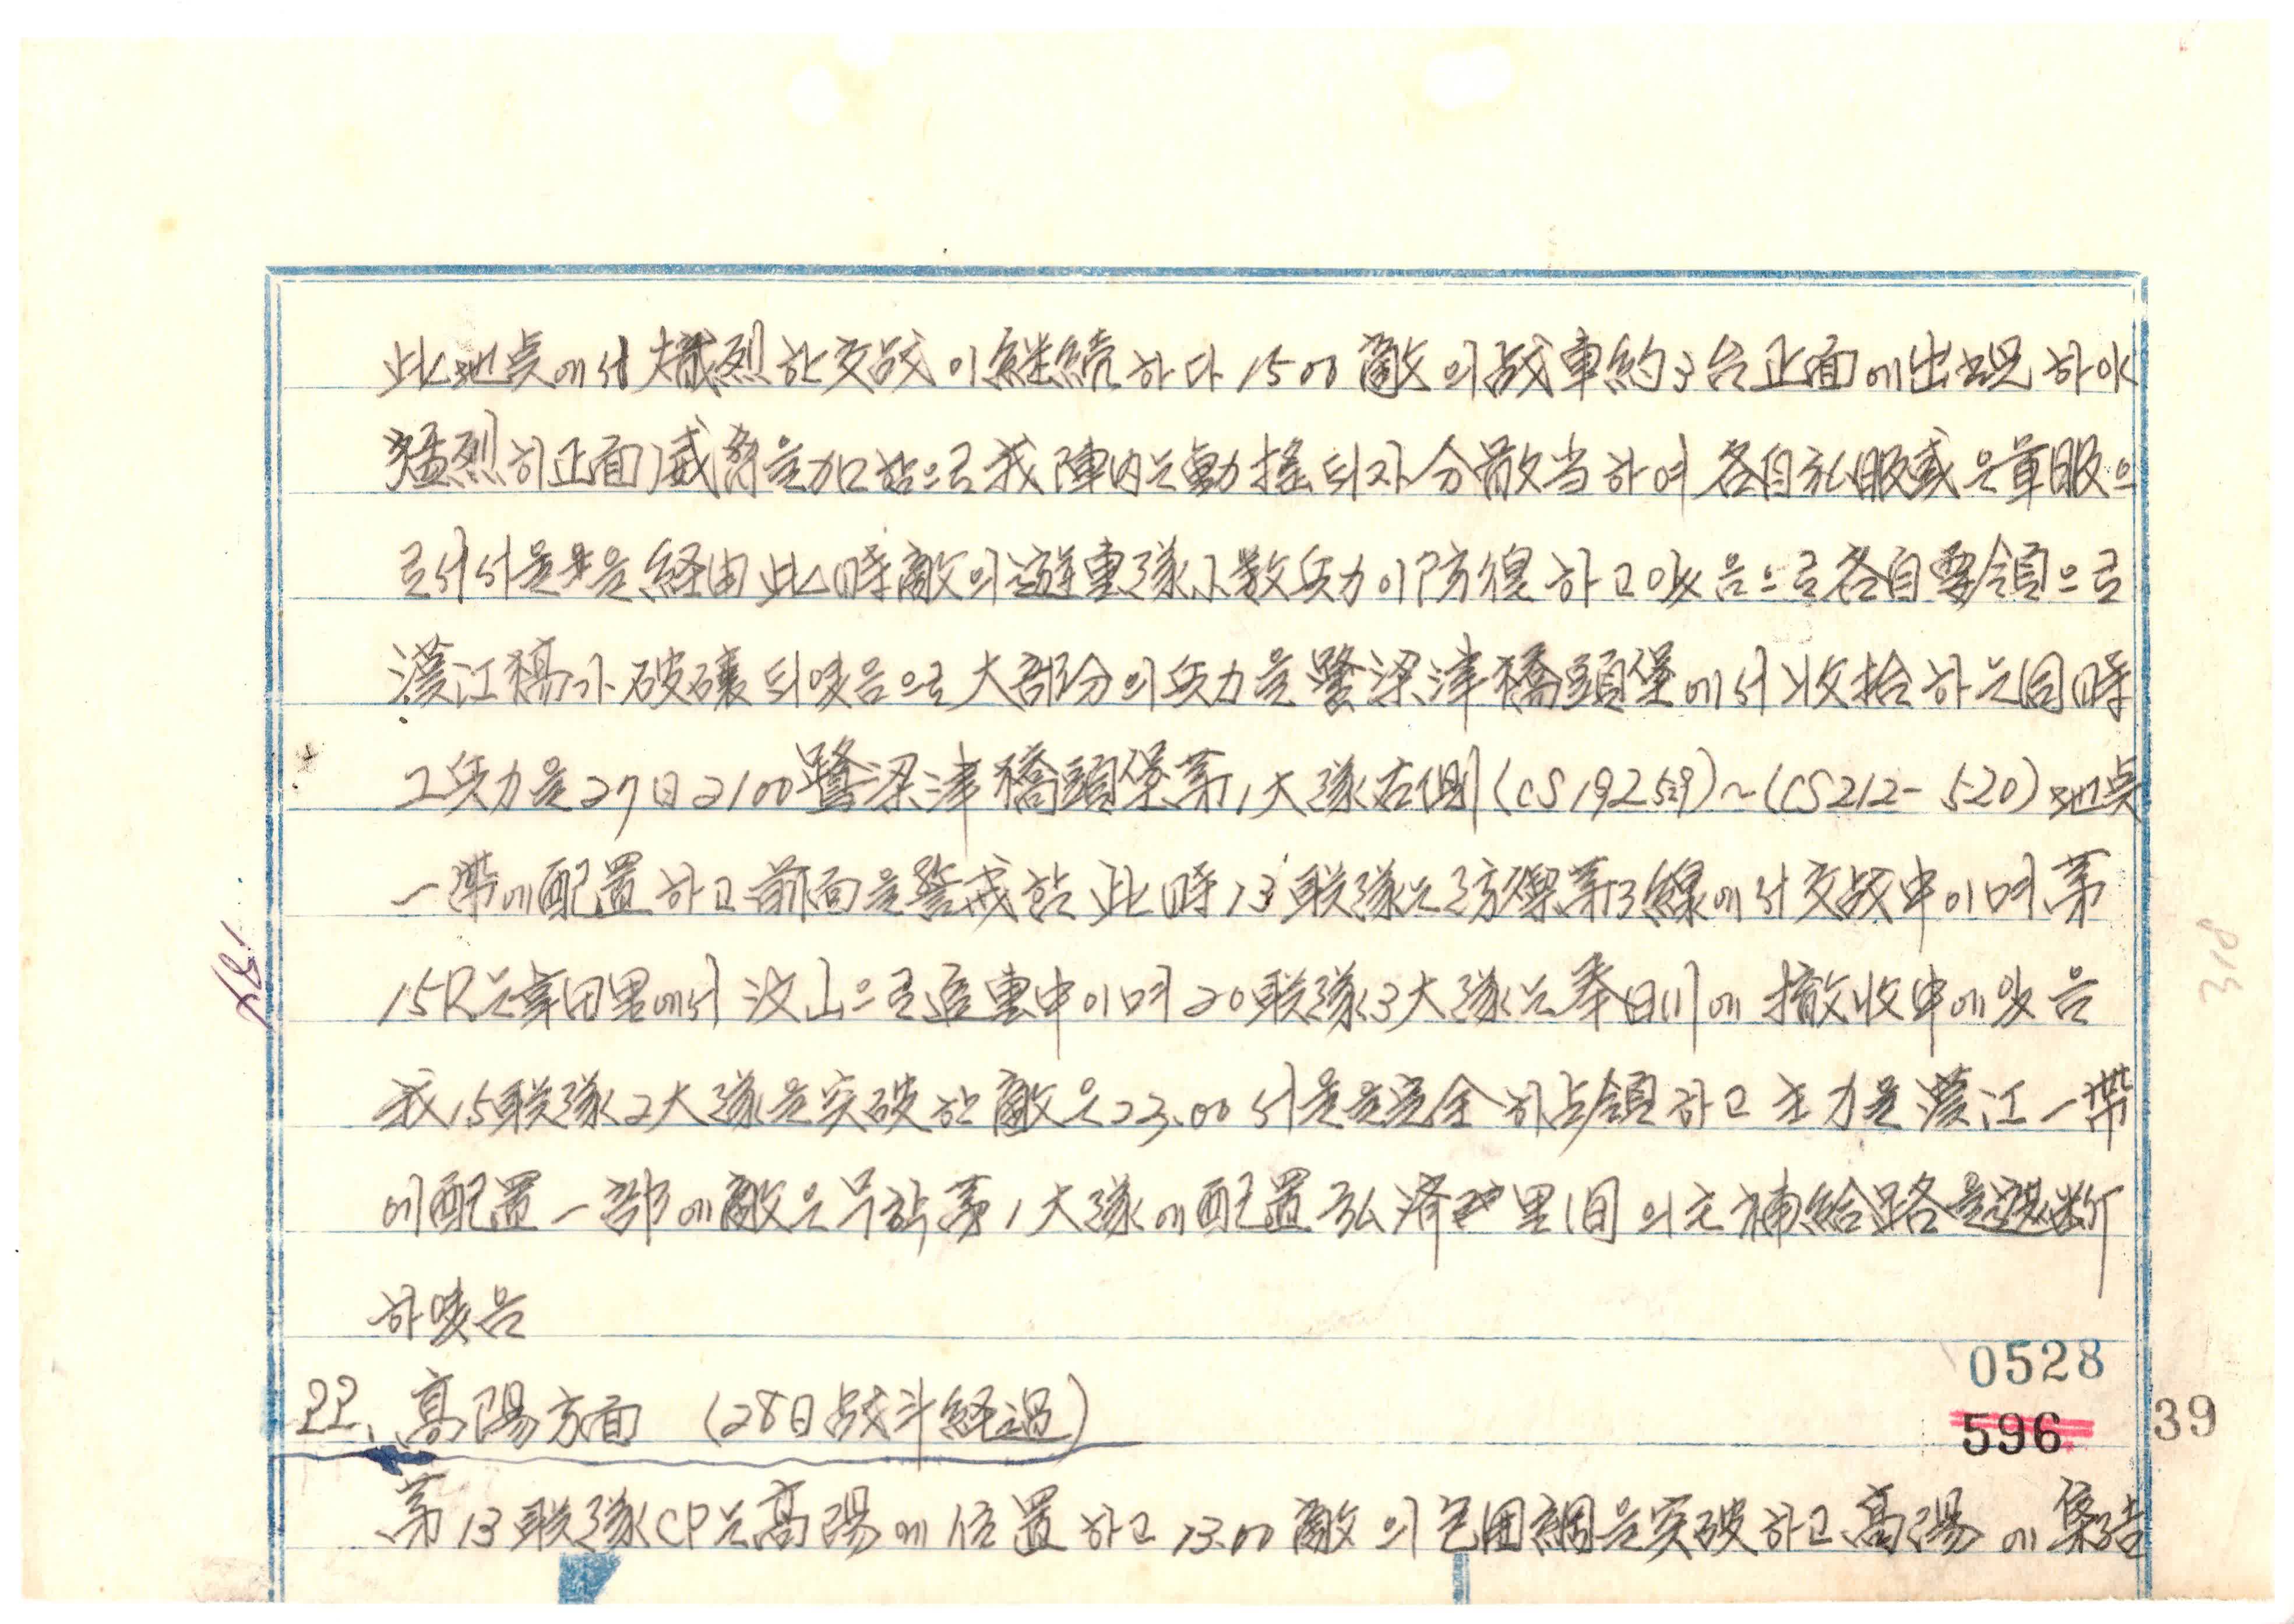 此地点에서 熾烈한 交战이 継続하다 1500 敵의 战車約3台 正面에 出現하야
猛烈히 正面 威脅을 加함으로 我陣内는 動揺되자 分散当하여 各自 私服 或은 軍服으
로서 서울을 経由 此時 敵의 遊車隊 小数兵力이 防備하고 있음으로 各自 要領으로
漢江橋가 破壞되였음으로 大部分의 兵力을 鷺梁津 橋頭堡에서 收拾하는 同時
그 兵力을 27日 2100 鷺梁津 橋頭堡 第1大隊 右側 (CS192529)~(CS212-520) 地点
一帯에 配置하고 前面을 警戒함 此時 13联隊는 防禦 第3線에서 交战中이며 第
15R는 幸田里에서 汶山으로 進軍中이며 20联隊 3大隊는 奉日川에 撤收中에 있음
我 15联隊 2大隊을 突破한 敵은 23.00 서울을 完全히 占領하고 主力을 漢江一帯
에 配置 一部에 敵은 第1大隊에 配置 里間의 補給路을 遮断
하였음
22. 高陽方面 (28日 战斗経過)
第13联隊 CP는 高陽에 位置하고 13.00 敵의 包囲網을 突破하고 高陽에 集結
0528
596
39
318